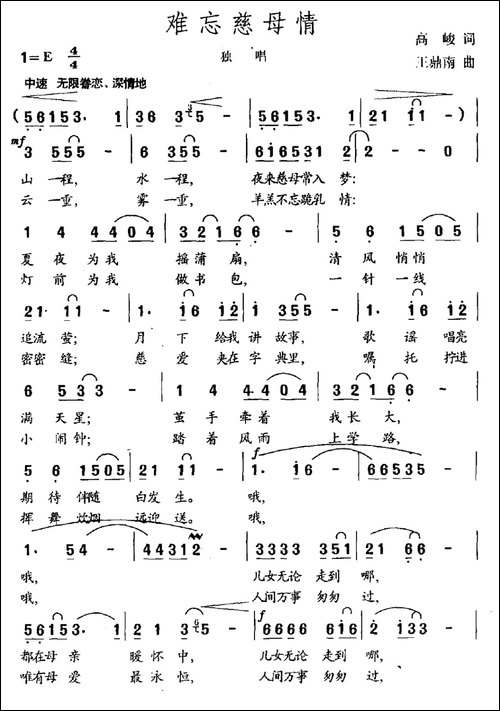 难忘慈母情
1=E 4/4 独 唱 高 峻 词
王鼎南 曲
中速 无限眷恋、深情地
( 5 6 1 5 3. 1 | 3 6 3 5 - | 5 6 1 5 3. 1 | 2 1 1 1 - )
mf
3 5 5 5 - | 6 3 5 5 - | 6 1 6 5 3 1 2 | 2 - - 0
山 一程, 水 一程, 夜来慈母常入 梦:
云 一重, 雾 一重, 羊羔不忘跪乳 情:
1 4 4 4 0 4 | 3 2 1 6 6 - | 5 6 1 5 0 5
夏 夜 为我 摇蒲 扇, 清 风 悄悄
灯 前 为我 做书 包, 一 针 一线
2 1. 1 1 - | 1. 1 6 1 2 | 1 3 5 5 - | 1. 6 1 2
追流 萤; 月 下 给我 讲 故事, 歌 谣 唱亮
密密 缝; 慈 爱 夹在 字 典里, 嘱 托 拧进
6 5 3 3 - | 1 4 4 4 0 4 | 3 2 1 6 6 -
满 天星; 茧 手 牵着 我长 大,
小 闹钟; 踏 着 风雨 上学 路,
f
5 6 1 5 0 5 | 2 1 1 1 - | 1. 1 6 - | 6 6 5 3 5 -
期 待 伴随 白发 生。 哦,
挥 舞 炊烟 远迎 送。 哦,
1. 5 4 - | 4 4 3 1 2 - | 3 3 3 3 3 3 5 1 | 2 1 6 6 -
哦, 儿女无论 走到 哪,
哦, 人间万事 匆匆 过,
f
5 6 1 5 3. 1 | 2 1 3 5 - | 6 6 6 6 6 1 6 | 2 1 3 3 -
都在母 亲 暖怀 中, 儿女无论 走到 哪,
唯有母 爱 最永 恒, 人间万事 匆匆 过,